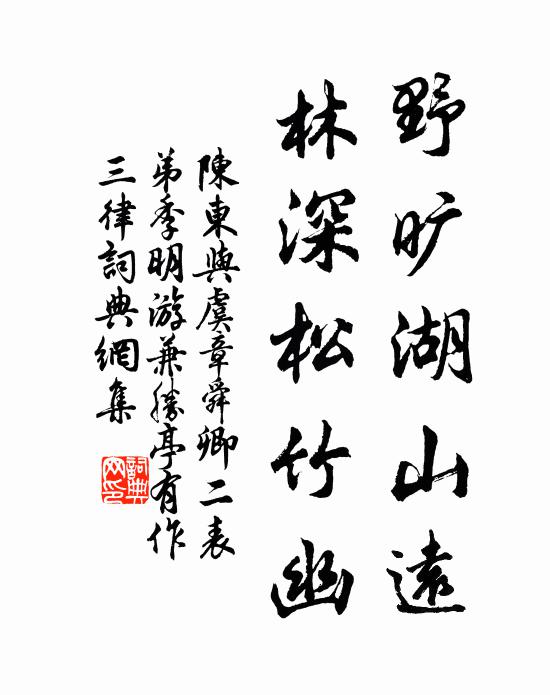 野旷湖山遠
林深松竹幽
陳東與虞章舜卿二表
弟季明游兼勝亭有作
三律詞典網集
詞典網印